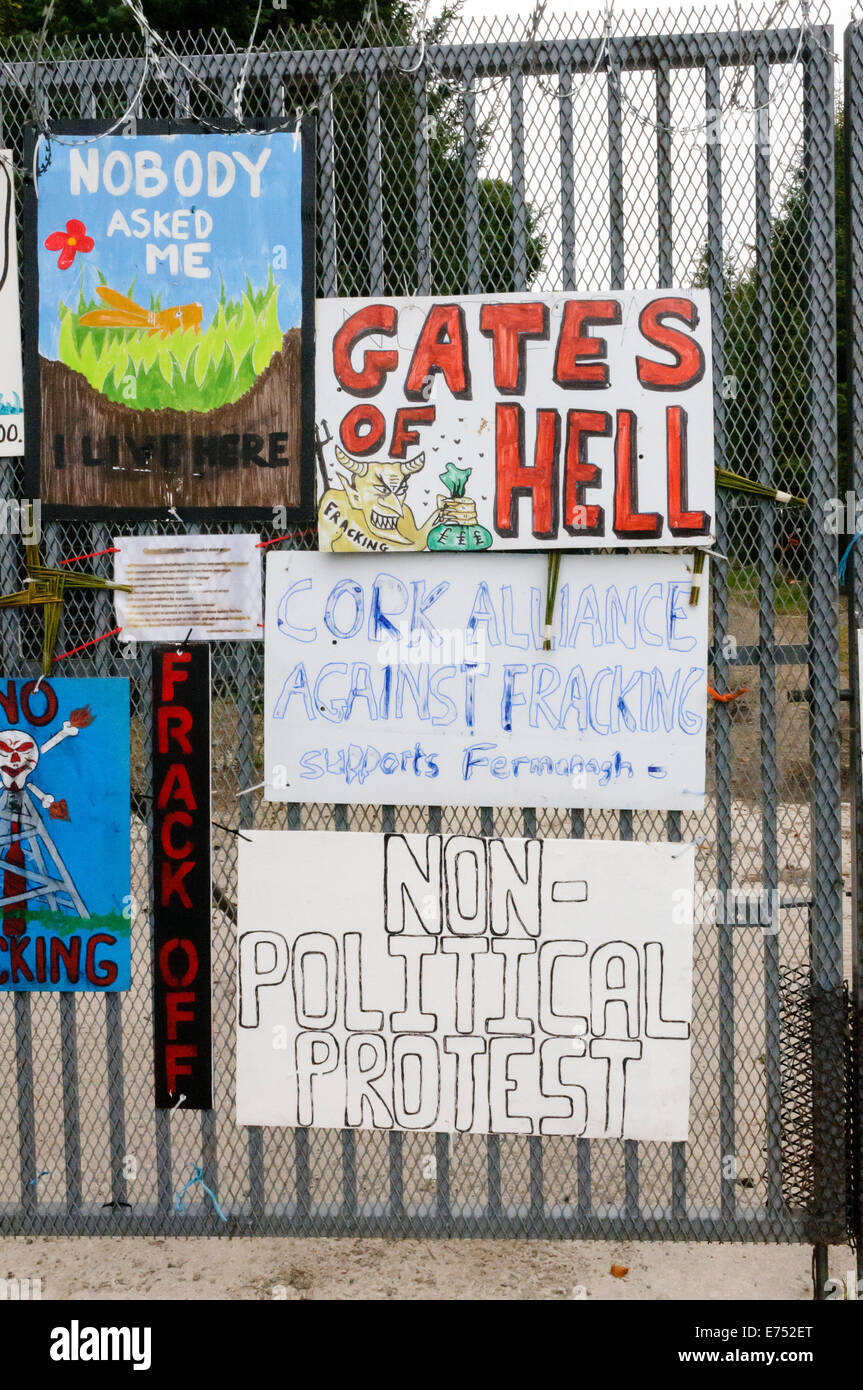 NOBODY
ASKED
ME
I LIVE HERE
00.
GATES
OF HELL
FRACKING
£ £ £
CORK ALLIANCE
AGAINST FRACKING
supports Fermanagh -
NO
CKING
FRACK OFF
NON-
POLITICAL
PROTEST
a
alamy stock photo
E752ET
www.alamy.com